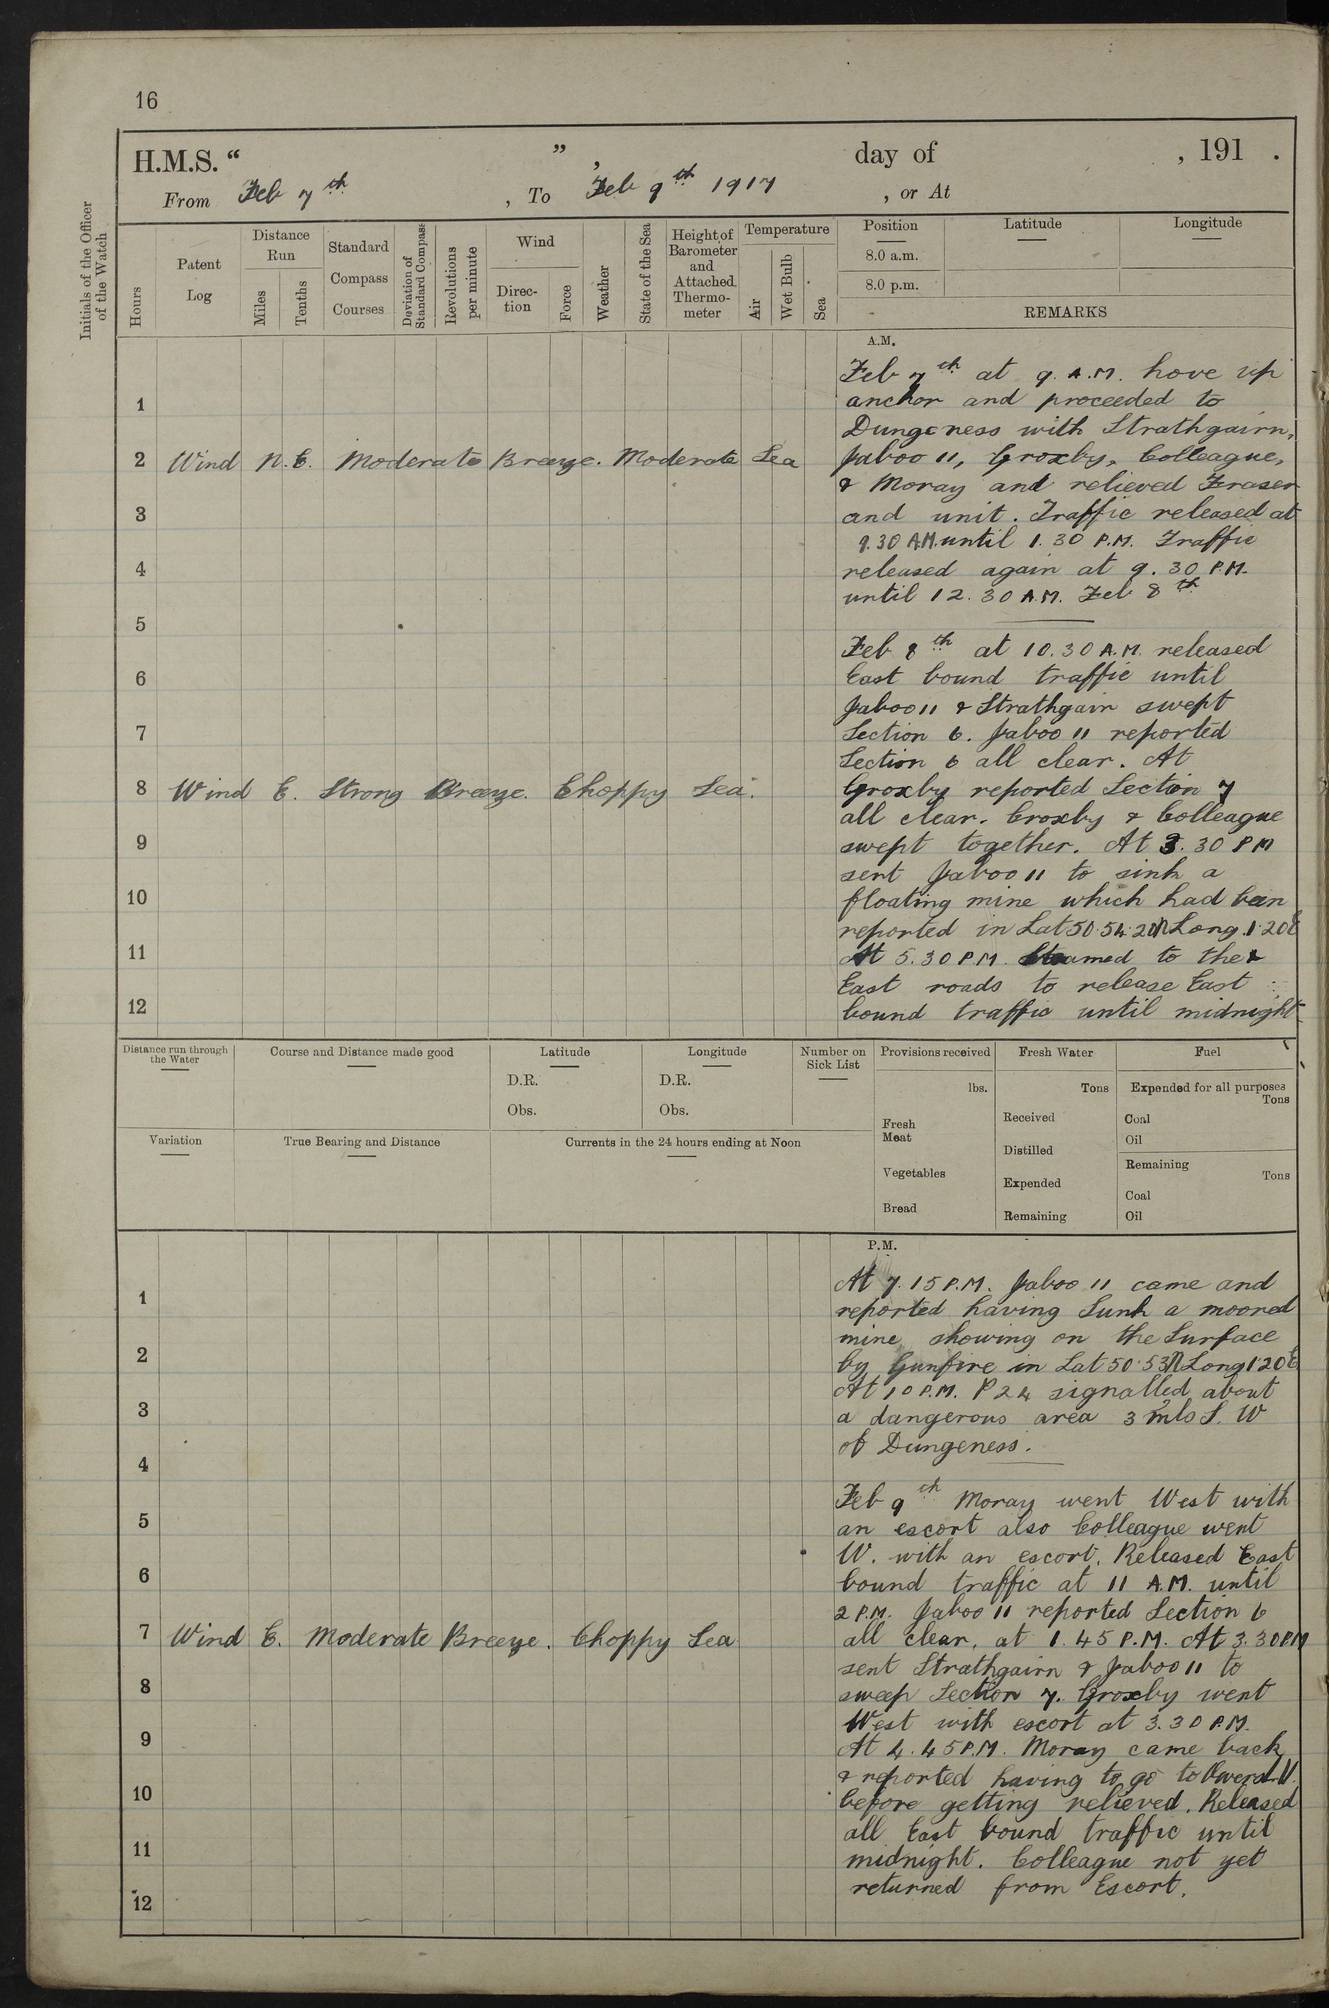 16
H.M.S. “ ” , day of , 191 .
From Feb 7th , To Feb 9th 1917 , or At
Initials of the Officer of the Watch
Hours
Patent Log
Distance Run
Miles
Tenths
Standard Compass Courses
Deviation of Standard Compass
Revolutions per minute
Wind
Direction
Force
Weather
State of the Sea
Height of Barometer and Attached Thermometer
Temperature
Air
Wet Bulb
Sea
Position
8.0 a.m.
8.0 p.m.
Latitude
Longitude
REMARKS
A.M.
Feb 7th at 9. A.M. hove up
1 anchor and proceeded to
Dungeness with Strathgairn,
2 Wind N.E. Moderate Breeze. Moderate Sea
Jaboo 11, Groxby, Colleague,
& Moray and relieved Fraser
3 and unit. Traffic released at
9.30 A.M. until 1.30 P.M. Traffic
4 released again at 9.30 P.M.
until 12.30 A.M. Feb 8th
5
Feb 8th at 10.30 A.M. released
6 East bound traffic until
Jaboo 11 & Strathgair swept
7 Section 6. Jaboo 11 reported
Section 6 all clear. At
8 Wind E. Strong Breeze. Choppy Sea.
Groxby reported Section 7
all clear. Croxby & Colleague
9 swept together. At 3.30 PM
sent Jaboo 11 to sink a
10 floating mine which had been
reported in Lat 50.54.20N Long. 1.20E
11 At 5.30 P.M. Steamed to the
East roads to release East
12 bound traffic until midnight
Distance run through the Water
Course and Distance made good
Latitude
D.R.
Obs.
Longitude
D.R.
Obs.
Number on Sick List
Provisions received
lbs.
Fresh Meat
Vegetables
Bread
Fresh Water
Tons
Received
Distilled
Expended
Remaining
Fuel
Expended for all purposes
Tons
Coal
Oil
Remaining
Tons
Coal
Oil
Variation
True Bearing and Distance
Currents in the 24 hours ending at Noon
P.M.
At 7.15 P.M. Jaboo 11 came and
1 reported having Sunk a moored
mine showing on the Surface
2 by Gunfire in Lat 50.53N Long 1.20E
At 10 P.M. P24 signalled about
3 a dangerous area 3 mls S. W
of Dungeness.
4
Feb 9th Moray went West with
5 an escort also Colleague went
W. with an escort. Released East
6 bound traffic at 11 A.M. until
2 P.M. Jaboo 11 reported Section 6
7 Wind E. Moderate Breeze. Choppy Sea
all clear, at 1.45 P.M. At 3.30 PM
sent Strathgairn & Jaboo 11 to
8 sweep Section 7. Groxby went
West with escort at 3.30 P.M.
9 At 4.45 P.M. Moray came back
& reported having to go to
10 before getting relieved. Released
all East bound traffic until
11 midnight. Colleague not yet
returned from Escort.
12